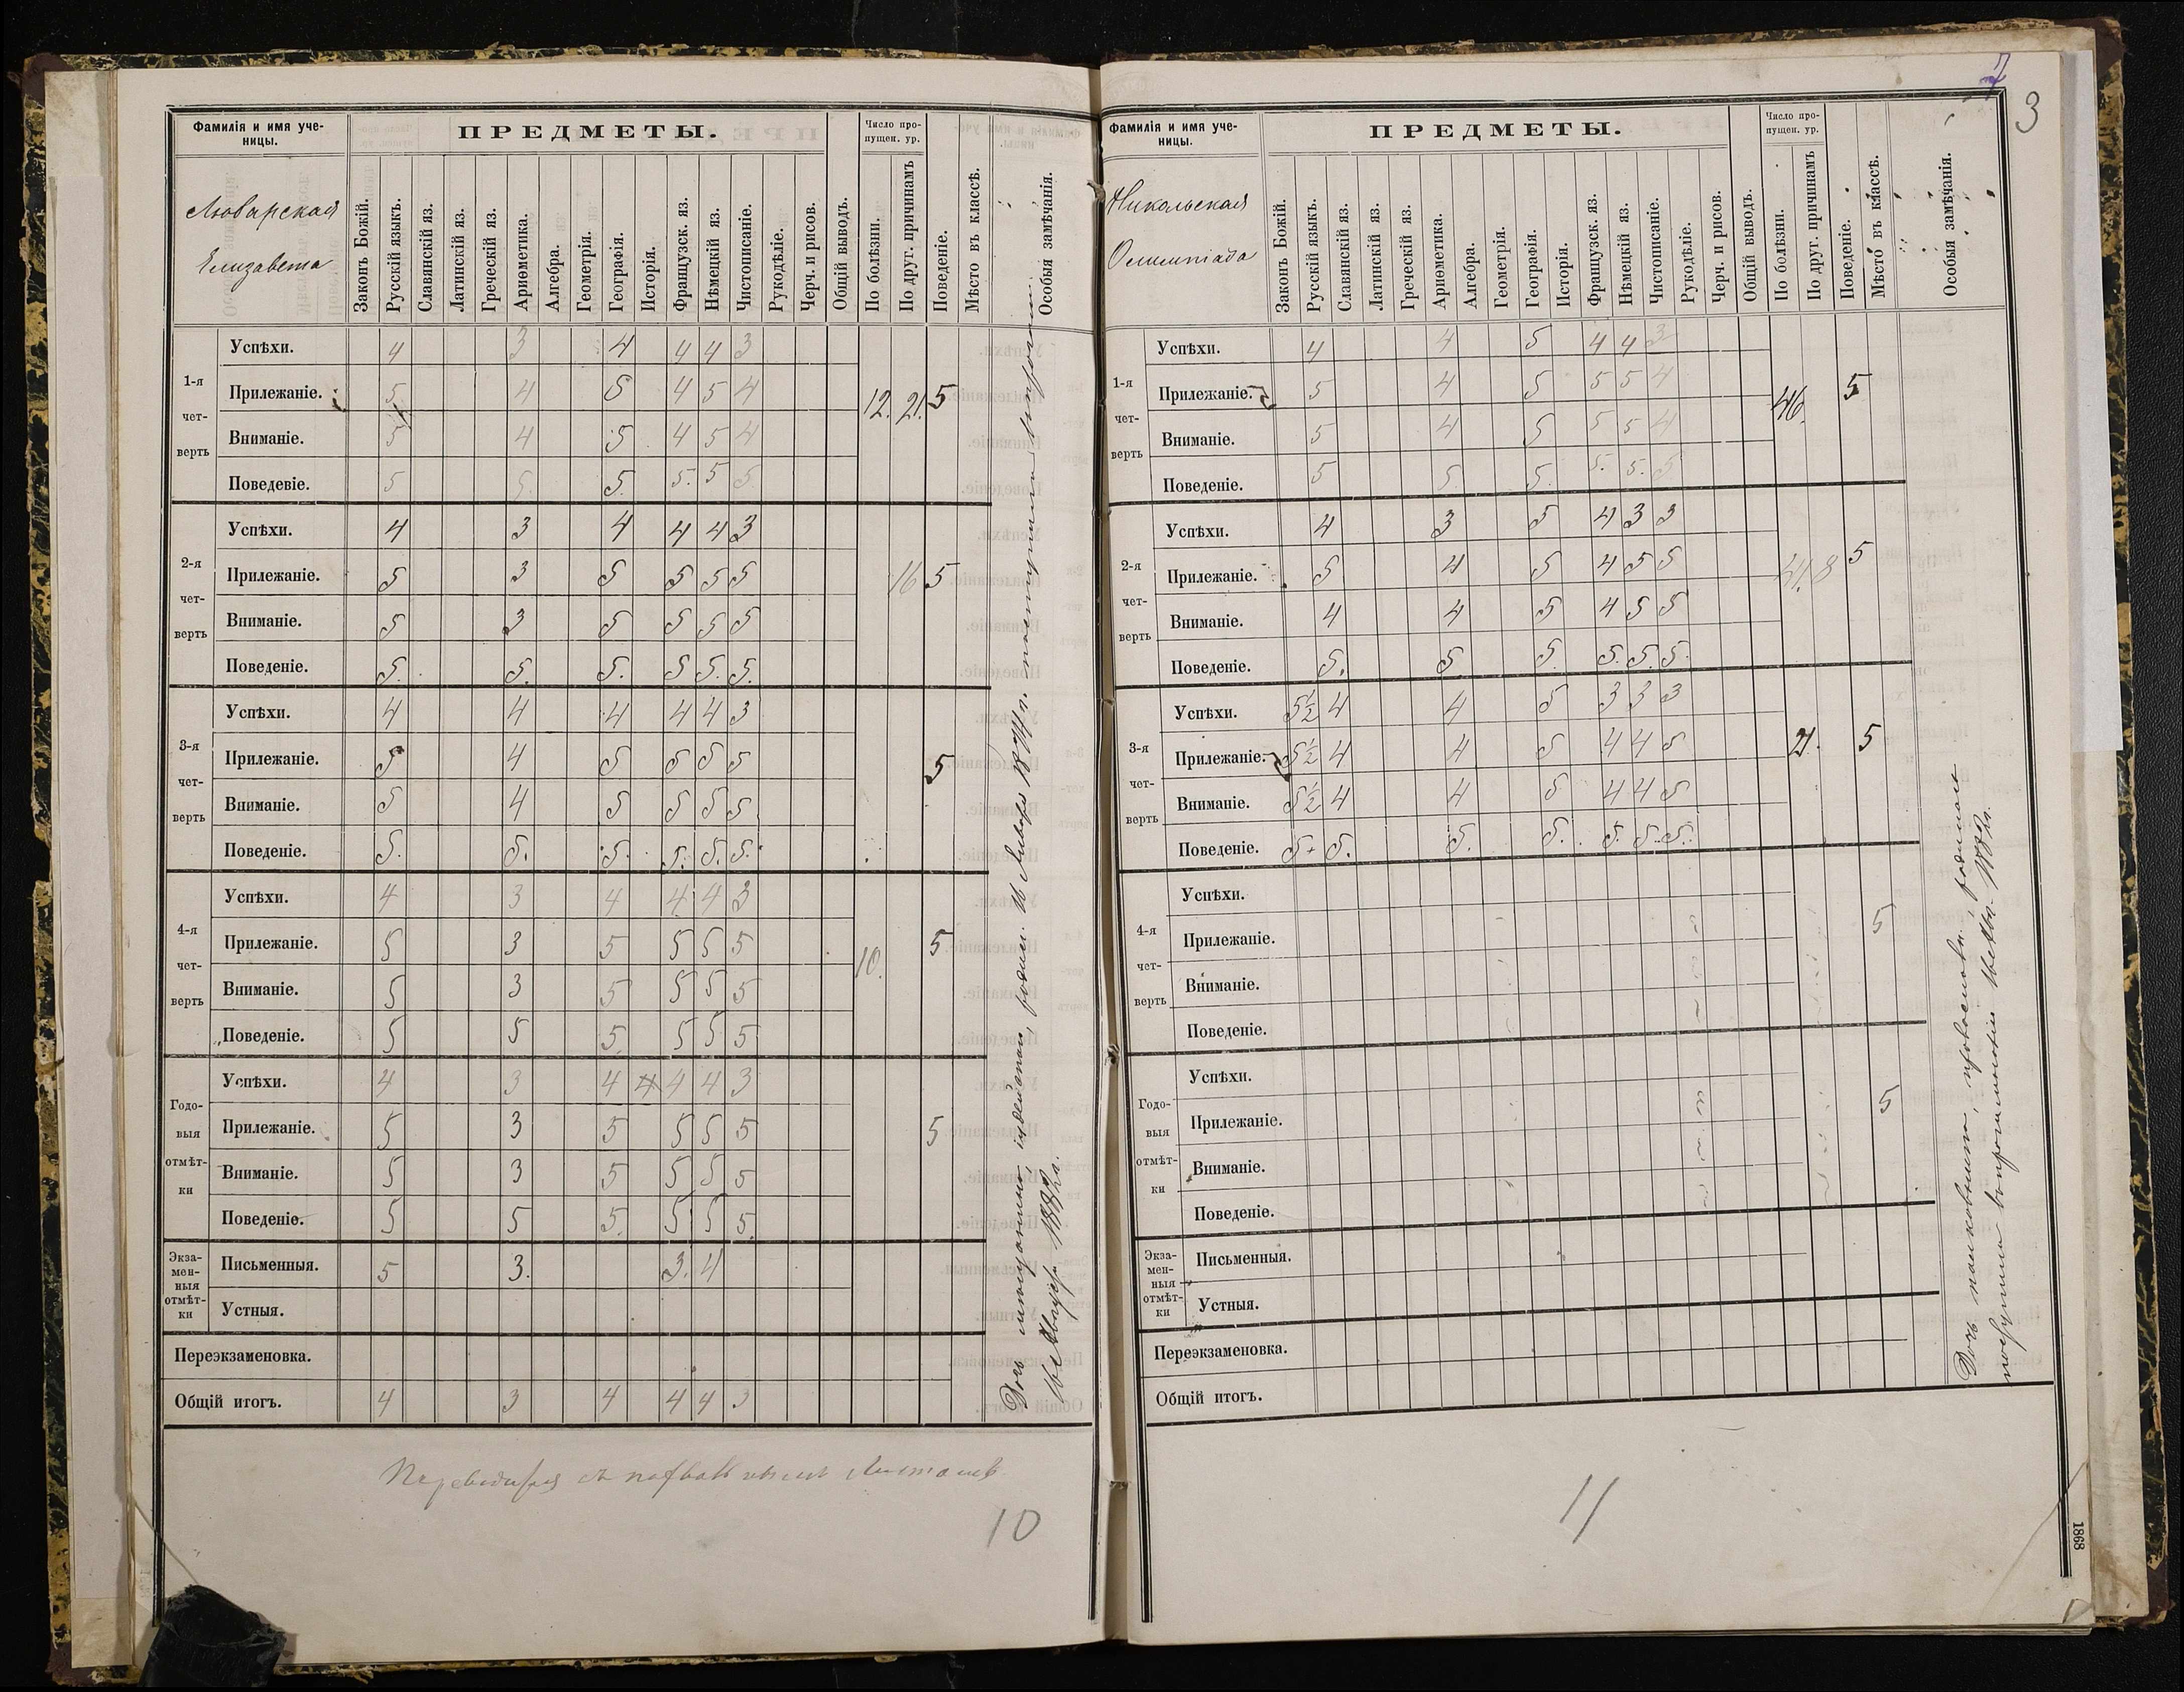 Фамилія и имя уче-
ницы.
ПРЕДМЕТЫ.
Число про-
пущен. ур.
Люварская
Елизавета
Законъ Божій.
Русскій языкъ.
Славянскій яз.
Латинскій яз.
Греческій яз.
Ариѳметика.
Алгебра.
Геометрія.
Географія.
Исторія.
Французск. яз.
Нѣмецкій яз.
Чистописаніе.
Рукодѣліе.
Черч. и рисов.
Общій выводъ.
По болѣзни.
По друг. причинамъ
Поведеніе.
Мѣсто въ классѣ.
Особыя замѣчанія.
1-я чет- верть
Успѣхи. 4 3 4 4 4 3
Прилежаніе. 5 4 5 4 5 4 12. 21. 5
Вниманіе. 5 4 5 4 5 4
Поведевіе. 5 5. 5. 5. 5 5
2-я чет- верть
Успѣхи. 4 3 4 4 4 3
Прилежаніе. 5 3 5 5 5 5 16 5
Вниманіе. 5 3 5 5 5 5
Поведеніе. 5. 5. 5. 5 5. 5.
3-я чет- верть
Успѣхи. 4 4 4 4 4 3
Прилежаніе. 5 4 5 5 5 5 5
Вниманіе. 5 4 5 5 5 5
Поведеніе. 5. 5. 5. 5. 5. 5.
4-я чет- верть
Успѣхи. 4 3 4 4 4 3
Прилежаніе. 5 3 5 5 5 5 10. 5
Вниманіе. 5 3 5 5 5 5
Поведеніе. 5 5 5. 5 5 5
Годо- выя отмѣт- ки
Успѣхи. 4 3 4 4 4 4 3
Прилежаніе. 5 3 5 5 5 5 5
Вниманіе. 5 3 5 5 5 5
Поведеніе. 5 5 5. 5 5 5.
Экза- мен- ныя отмѣт- ки
Письменныя. 5 3. 3. 4
Устныя.
Переэкзаменовка.
Общій итогъ. 4 3 4 4 4 3
Дочь родил.
августа
10
7
3
Фамилія и имя уче-
ницы.
ПРЕДМЕТЫ.
Число про-
пущен. ур.
Никольская
Олимпіада
Законъ Божій.
Русскій языкъ.
Славянскій яз.
Латинскій яз.
Греческій яз.
Ариѳметика.
Алгебра.
Геометрія.
Географія.
Исторія.
Французск. яз.
Нѣмецкій яз.
Чистописаніе.
Рукодѣліе.
Черч. и рисов.
Общій выводъ.
По болѣзни.
По друг. причинамъ
Поведеніе.
Мѣсто въ классѣ.
Особыя замѣчанія.
1-я чет- верть
Успѣхи. 4 4 5 4 4 3
Прилежаніе. 5 4 5 5 5 4 46. 5
Вниманіе. 5 4 5 5 5 4
Поведеніе. 5 5. 5. 5. 5. 5
2-я чет- верть
Успѣхи. 4 3 5 4 3 3
Прилежаніе. 5 4 5 4 5 5 41. 8 5
Вниманіе. 4 4 5 4 5 5
Поведеніе. 5. 5 5. 5. 5. 5.
3-я чет- верть
Успѣхи. 5½ 4 4 5 3 3 3
Прилежаніе. 5½ 4 4 5 4 4 5 21. 5
Вниманіе. 5½ 4 4 5 4 4 5
Поведеніе. 5+ 5. 5. 5. 5. 5. 5.
4-я чет- верть
Успѣхи.
Прилежаніе. 5
Вниманіе.
Поведеніе.
Годо- выя отмѣт- ки
Успѣхи.
Прилежаніе. 5
Вниманіе.
Поведеніе.
Экза- мен- ныя отмѣт- ки
Письменныя.
Устныя.
Переэкзаменовка.
Общій итогъ.
Дочь православн.
11
1868